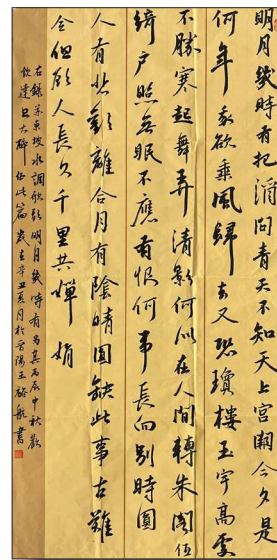 明月幾時有把酒問青天不知天上宮闕今夕是
何年我欲乘風歸去又恐瓊樓玉宇高處
不勝寒起舞弄清影何似在人間轉朱閣低
綺戶照無眠不應有恨何事長向別時圓
人有悲歡離合月有陰晴圓缺此事古難
全但願人長久千里共嬋娟
右錄蘇東坡水調歌頭明月幾時有句其丙辰中秋歡
飲達旦大醉作此篇歲在辛丑夏月於晉陽王航書